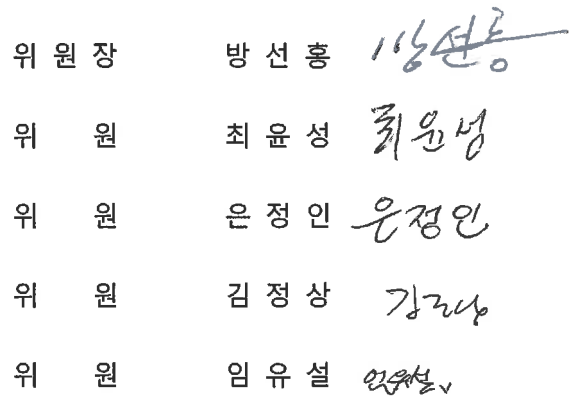 위 원 장 방 선 홍 방선홍
위 원 최 윤 성 최윤성
위 원 은 정 인 은정인
위 원 김 정 상
위 원 임 유 설